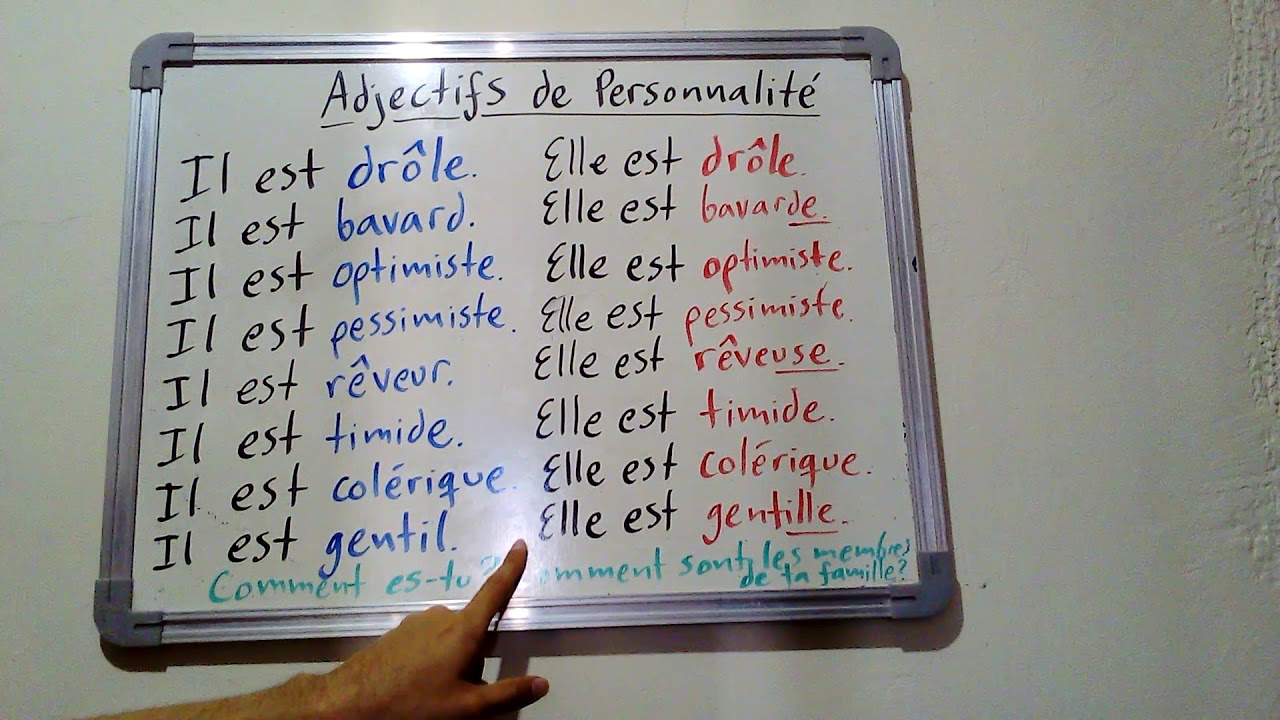 Adjectifs de Personnalité
Il est drôle. Elle est drôle.
Il est bavard. Elle est bavarde.
Il est optimiste. Elle est optimiste.
Il est pessimiste. Elle est pessimiste.
Il est rêveur. Elle est rêveuse.
Il est timide. Elle est timide.
Il est colérique. Elle est colérique.
Il est gentil. Elle est gentille.
Comment es-tu? omment sont les membres
de ta famille?